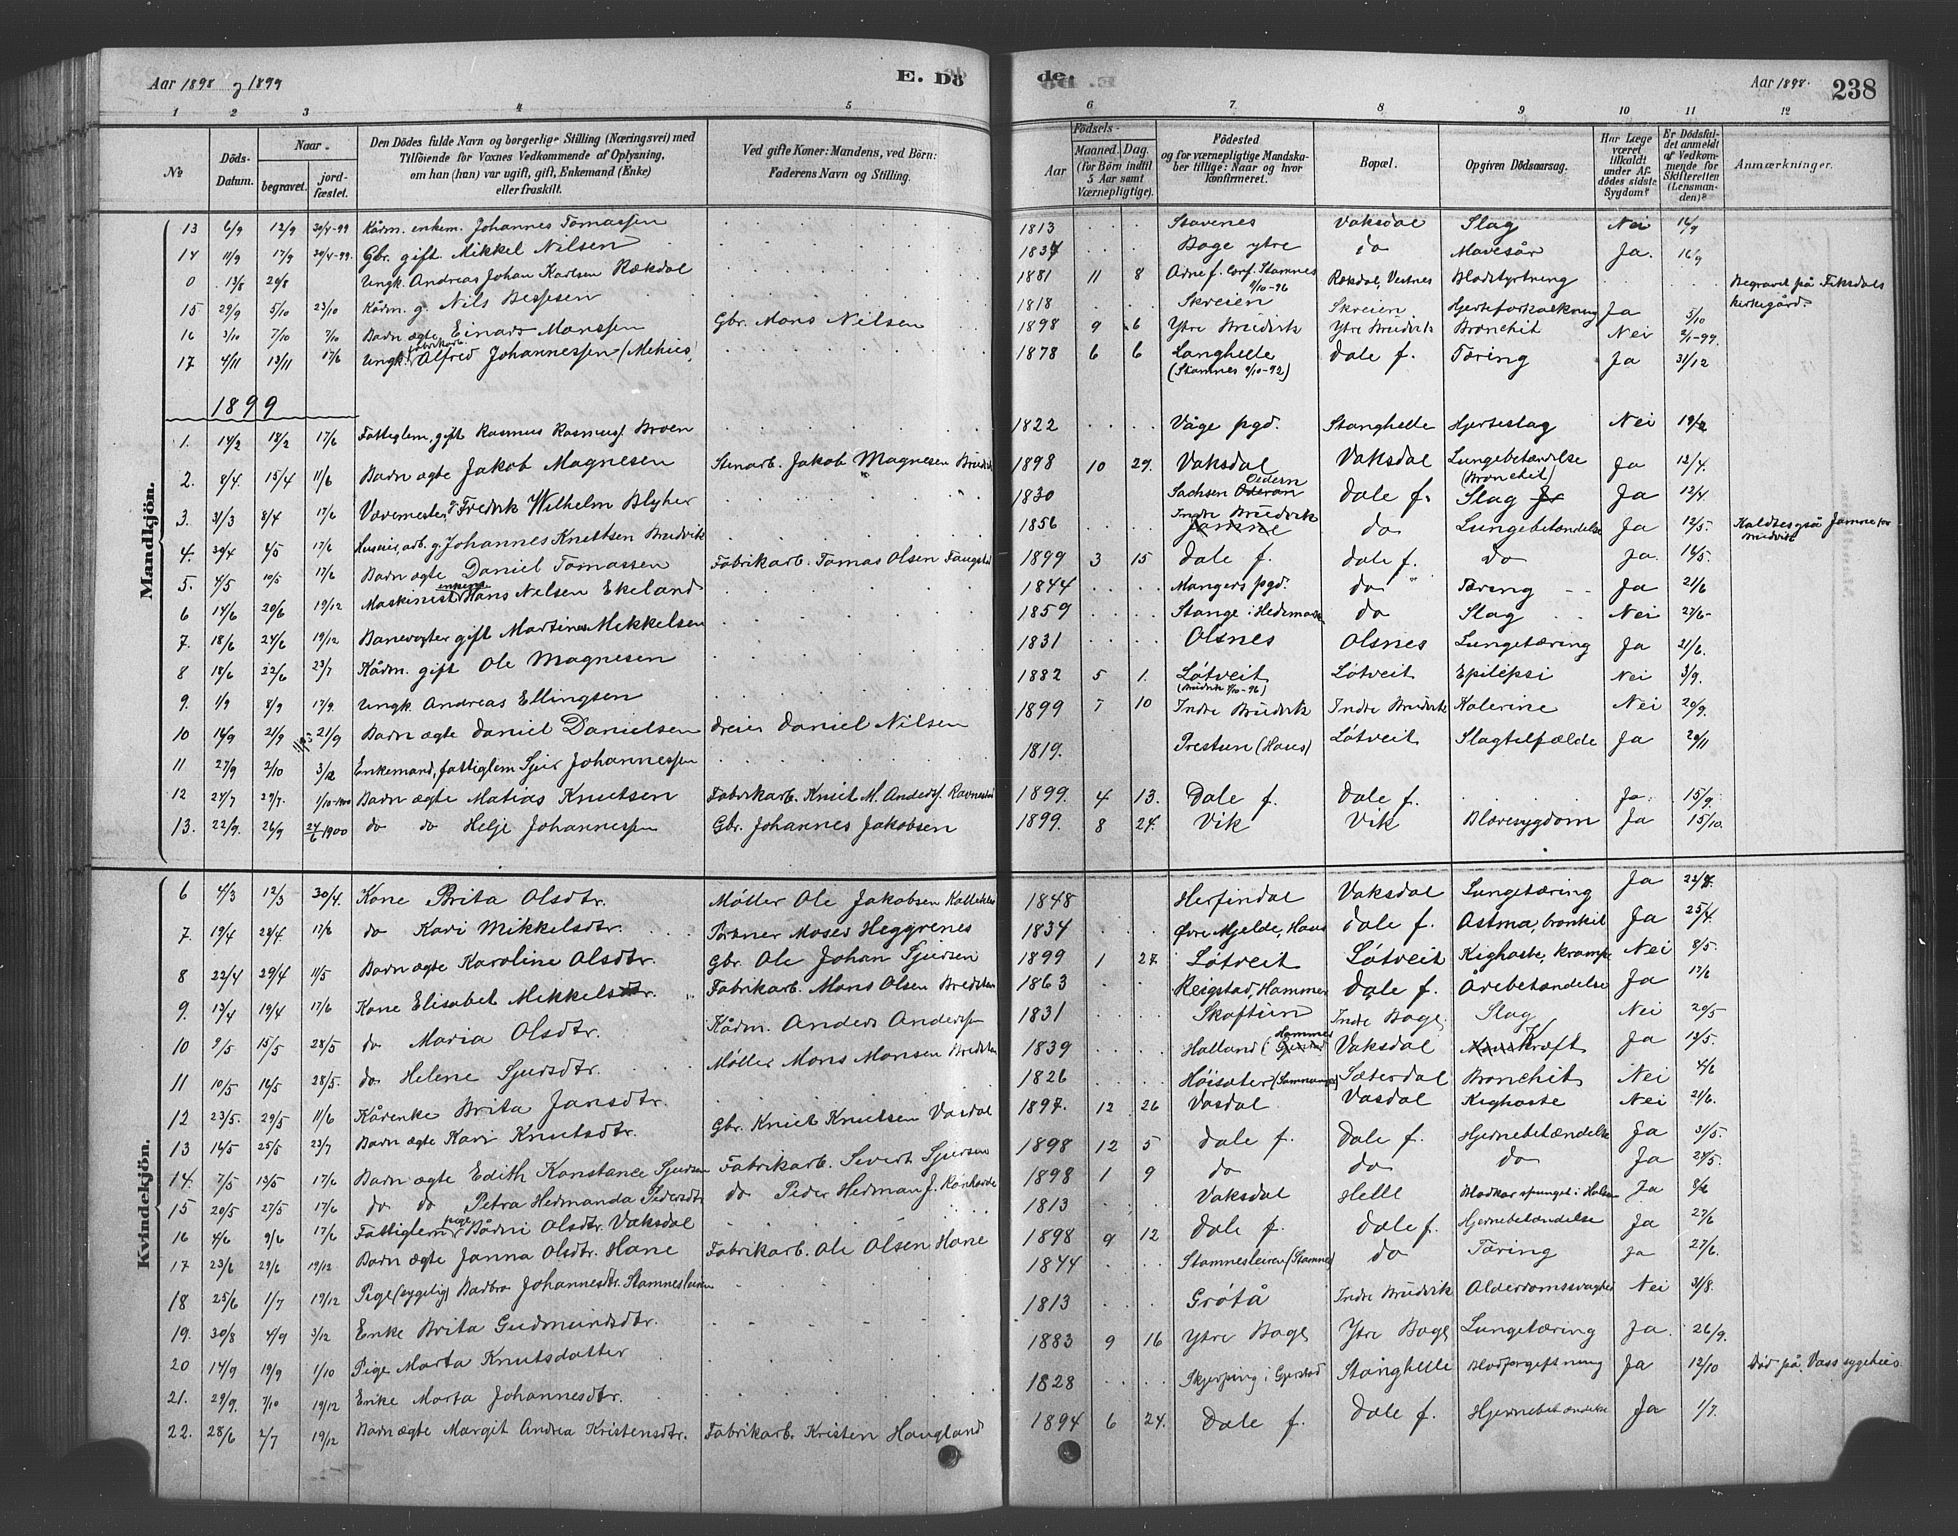 Aar 1898 og 1899 E. Dö
de. Aar 1898. 238
1 2 3 4 5 6 7 8 9 10 11 12
No Döds-Datum. Naar begravet. jordfæstet. Den Dödes fulde Navn og borgerlige Stilling (Næringsvei) med Tilföiende for Voxnes Vedkommende af Oplysning, om han (hun) var ugift, gift, Enkemand (Enke) eller fraskilt. Ved gifte Koner: Mandens, ved Börn: Faderens Navn og Stilling. Födsels- Aar Maaned. Dag. (for Börn indtil 5 Aar samt Værnepligtige). Födested og for værnepligtige Mandskaber tillige: Naar og hvor konfirmeret. Bopæl. Opgiven Dödsaarsag. Har Læge været tilkaldt under Afdödes sidste Sygdom? Er Dödsfaldet anmeldt af Vedkommende for Skifteretten (Lensmanden)? Anmærkninger.
Mandkjön.
13 6/9 12/9 30/4-99 Kårm. enkem. Johannes Tomassen 1813 Stavenes Vaksdal Slag Nei 16/9
14 11/9 17/9 30/4-99. Gbr. gift Mikkel Nilsen 1837 Boge ytre do Mavesår Ja. 16/9
0 13/8 20/8 Ungk. Andreas Johan Karlsen Rækdal 1881 11 8 Stamnes 9/10-96 Rækdal, Vestnes Blodstyrtning Begravet på Fiksdals kirkegård
15 29/9 5/10 23/10 Kårm. g. Nils Bessesen 1818 Skreien Skreien Hjerteforkalkning Ja 3/10
16 3/10 7/10 7/10 Barn ægte Einar Monssen Gbr. Mons Nilsen 1898 9 6 Ytre Brudvik Ytre Brudvik Bronchit Nei 2/1-99.
17 4/11 13/11 17/6 Ungk. fabrikarb. Alfred Johannessen 1878 6 6 Langhelle (Stamnes 9/10-92) Dale f. Tæring Ja 31/12
1899
1. 14/2 18/2 17/6 Fattiglem, gift Rasmus Rasmus. Broen 1822 Våge pgd. Stanghelle Hjerteslag Nei 19/2
2. 8/4. 15/4 11/6 Barn ægte Jakob Magnesen Stenarb. Jakob Magnesen Brudvik 1898 10 29. Vaksdal Vaksdal Lungebetændelse (Bronchit) Ja 12/4.
3. 31/3 8/4 17/6 Væremester Fredrik Wilhelm Blyher 1830 Sachsen Oedern Dale f. Slag Ja 12/4.
4. 30/4 6/5 17/6 Husm., arb. g. Johannes Knutsen Brudvik 1856 Indre Brudvik do Lungebetændelse Ja 12/5. Kaldtes også Jamne for Brudvik
5. 4/5 10/5 17/6 Barn ægte Daniel Tomassen Fabrikarb. Tomas Olsen Fangstad 1899 3 15 Dale f. Dale f. do Ja. 16/5.
6 14/6 20/6 19/12 Maskinist enkem. Hans Nelsen Ekeland 1844 Mangers pgd. do Tæring Ja 21/6
7. 18/6 24/6 19/12 Banevogter gift Martinus Mikkelsen 1859 Stange i Hedemarken do Slag Nei 27/6
8 18/6 22/6 23/7 Kårm. gift Ole Magnesen 1831 Olsnes Olsnes Lungetæring Ja 21/6.
9. 1/9 8/9 17/9. Ungk. Andreas Ellingsen 1882 5 1. Løtveit (Brudvik 9/10-96) Løtveit Epilepsi Nei 3/9.
10 16/9 21/9 21/9 Barn ægte Daniel Danielsen Dreier Daniel Nilsen 1899 7 10 Indre Brudvik Indre Brudvik Kolerine Nei 20/9.
11 27/9 2/10 3/12 Enkemand, fattiglem Sjur Johannessen 1819. Prestun (Haus) Løtveit Slagtilfælde Ja 20/11
12 24/7 29/7. 1/10-1900 Barn ægte Matias Knutsen Fabrikarb. Knut M. Anders. Ravnestad 1899. 4 13. Dale f. Dale f. Ja. 15/9.
13. 22/9. 26/9 24/6 1900 do do Helje Johannessen Gbr. Johannes Jakobsen 1899. 8 24. Vik Vik Blæresygdom Ja 15/10.
Kvindekjön.
6 4/3 12/3 30/4. Kone Brita Olsdtr. Møller Ole Jakobsen 1848 Herfindal Vaksdal Lungetæring Ja
7. 19/4 24/4. 17/6 do Kari Mikkelsdtr. Portner Moses Heggrenes 1834 Øvre Mjelde, Haus Dale f. Astma, bronkit Ja 25/4.
8 22/4 29/4 11/5 Barn ægte Karoline Olsdtr. Gbr. Ole Johan Sjursen 1899 1 27. Løtveit Løtveit Kighoste, krampe Nei 8/5
9. 13/4 19/4 17/6 Kone Elisabet Mikkelsdtr. Fabrikarb. Mons Olsen 1863 Hammer Dale f. Årebetændelse Ja 17/6
10 9/5 15/5 28/5 do Maria Olsdtr. Kårm. Anders Anderssen 1831 Skaftun Indre Boge Slag Nei 20/5
11 10/5 16/5 28/5. do Helene Sjursdtr. Møller Mons Monsen 1839 Halland (Hammer Vaksdal Kræft Ja 12/5.
12 23/5. 29/5 11/6 Kårenke Brita Jansdtr. 1826 Høisæter (Samnanger) Sæterdal Bronchit Nei 4/6
13 16/5 25/5 23/7 Barn ægte Kari Knutsdtr. Gbr. Knut Knutsen Vasdal 1897. 12 26 Vasdal Vasdal Kighoste Nei 21/6.
14. 7/5 13/5 17/6 Barn ægte Edith Konstance Sjursen Fabrikarb. Sivert Sjursen 1898 12 5 Dale f. Dale f. Hjernebetændelse Ja 31/5.
15 20/5 27/5 17/6 do do Petra Hermanda Pedersdtr do Peder Herman J. 1898 1 9 do do do Ja 24/5.
16 4/6 9/6 17/6 Fattiglem pige Bådni Olsdtr. Vaksdal 1813 Vaksdal Helle Blodkar sprunget i Halsen Ja 8/6
17 23/6 29/6 19/12 Barn ægte Janna Olsdtr. Hane Fabrikarb. Ole Olsen Hane 1898 9 12 Dale f. Dale f. Hjernebetændelse Ja 27/6
18 25/6 1/7 19/12 Pige (sygelig) Barbro Johannesdtr. Stamnesleiren 1844 Stamnesleiren (Stamnes) do Tæring Ja 27/6.
19. 30/8 4/9 3/12 Enke Brita Gudmundsdtr. 1813 Grøtå Indre Brudvik Alderdomssvaghed Nei 31/8.
20 14/9 19/9 1/10 Pige Marta Knutsdatter 1883 9 16 Ytre Boge Ytre Boge Lungetæring Ja. 26/9.
21. 29/9. 7/10 19/12 Enke Marta Johannesdtr. 1828 Skjerping i Gjerstad Stanghelle Blodforgiftning Ja 12/10 Död på Voss sygehus
22. 28/6 2/7 19/12 Barn ægte Margit Andrea Kristensdtr. Fabrikarb. Kristen Haugland 1894 6 24. Dale f. Dale f. Hjernebetændelse Ja 1/7.